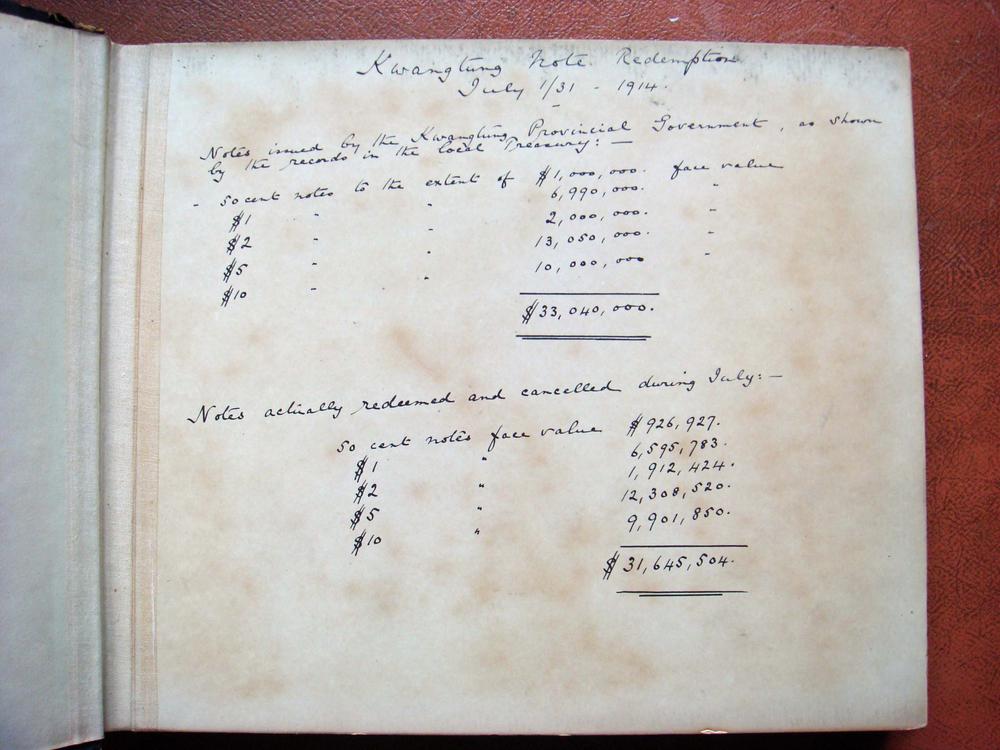 Kwangtung Note Redemption
July 1/31 - 1914.
Notes issued by the Kwangtung Provincial Government, as shown
by the records in the local Treasury: —
- 50 cent notes to the extent of $1,000,000. face value
$1 " " 6,990,000. "
$2 " " 2,000,000. "
$5 " " 13,050,000. "
$10 " 10,000,000
$33,040,000.
Notes actually redeemed and cancelled during July: —
50 cent notes face value $926,927.
$1 " 6,595,783.
$2 " 1,912,424.
$5 " 12,308,520.
$10 " 9,901,850.
$31,645,504.